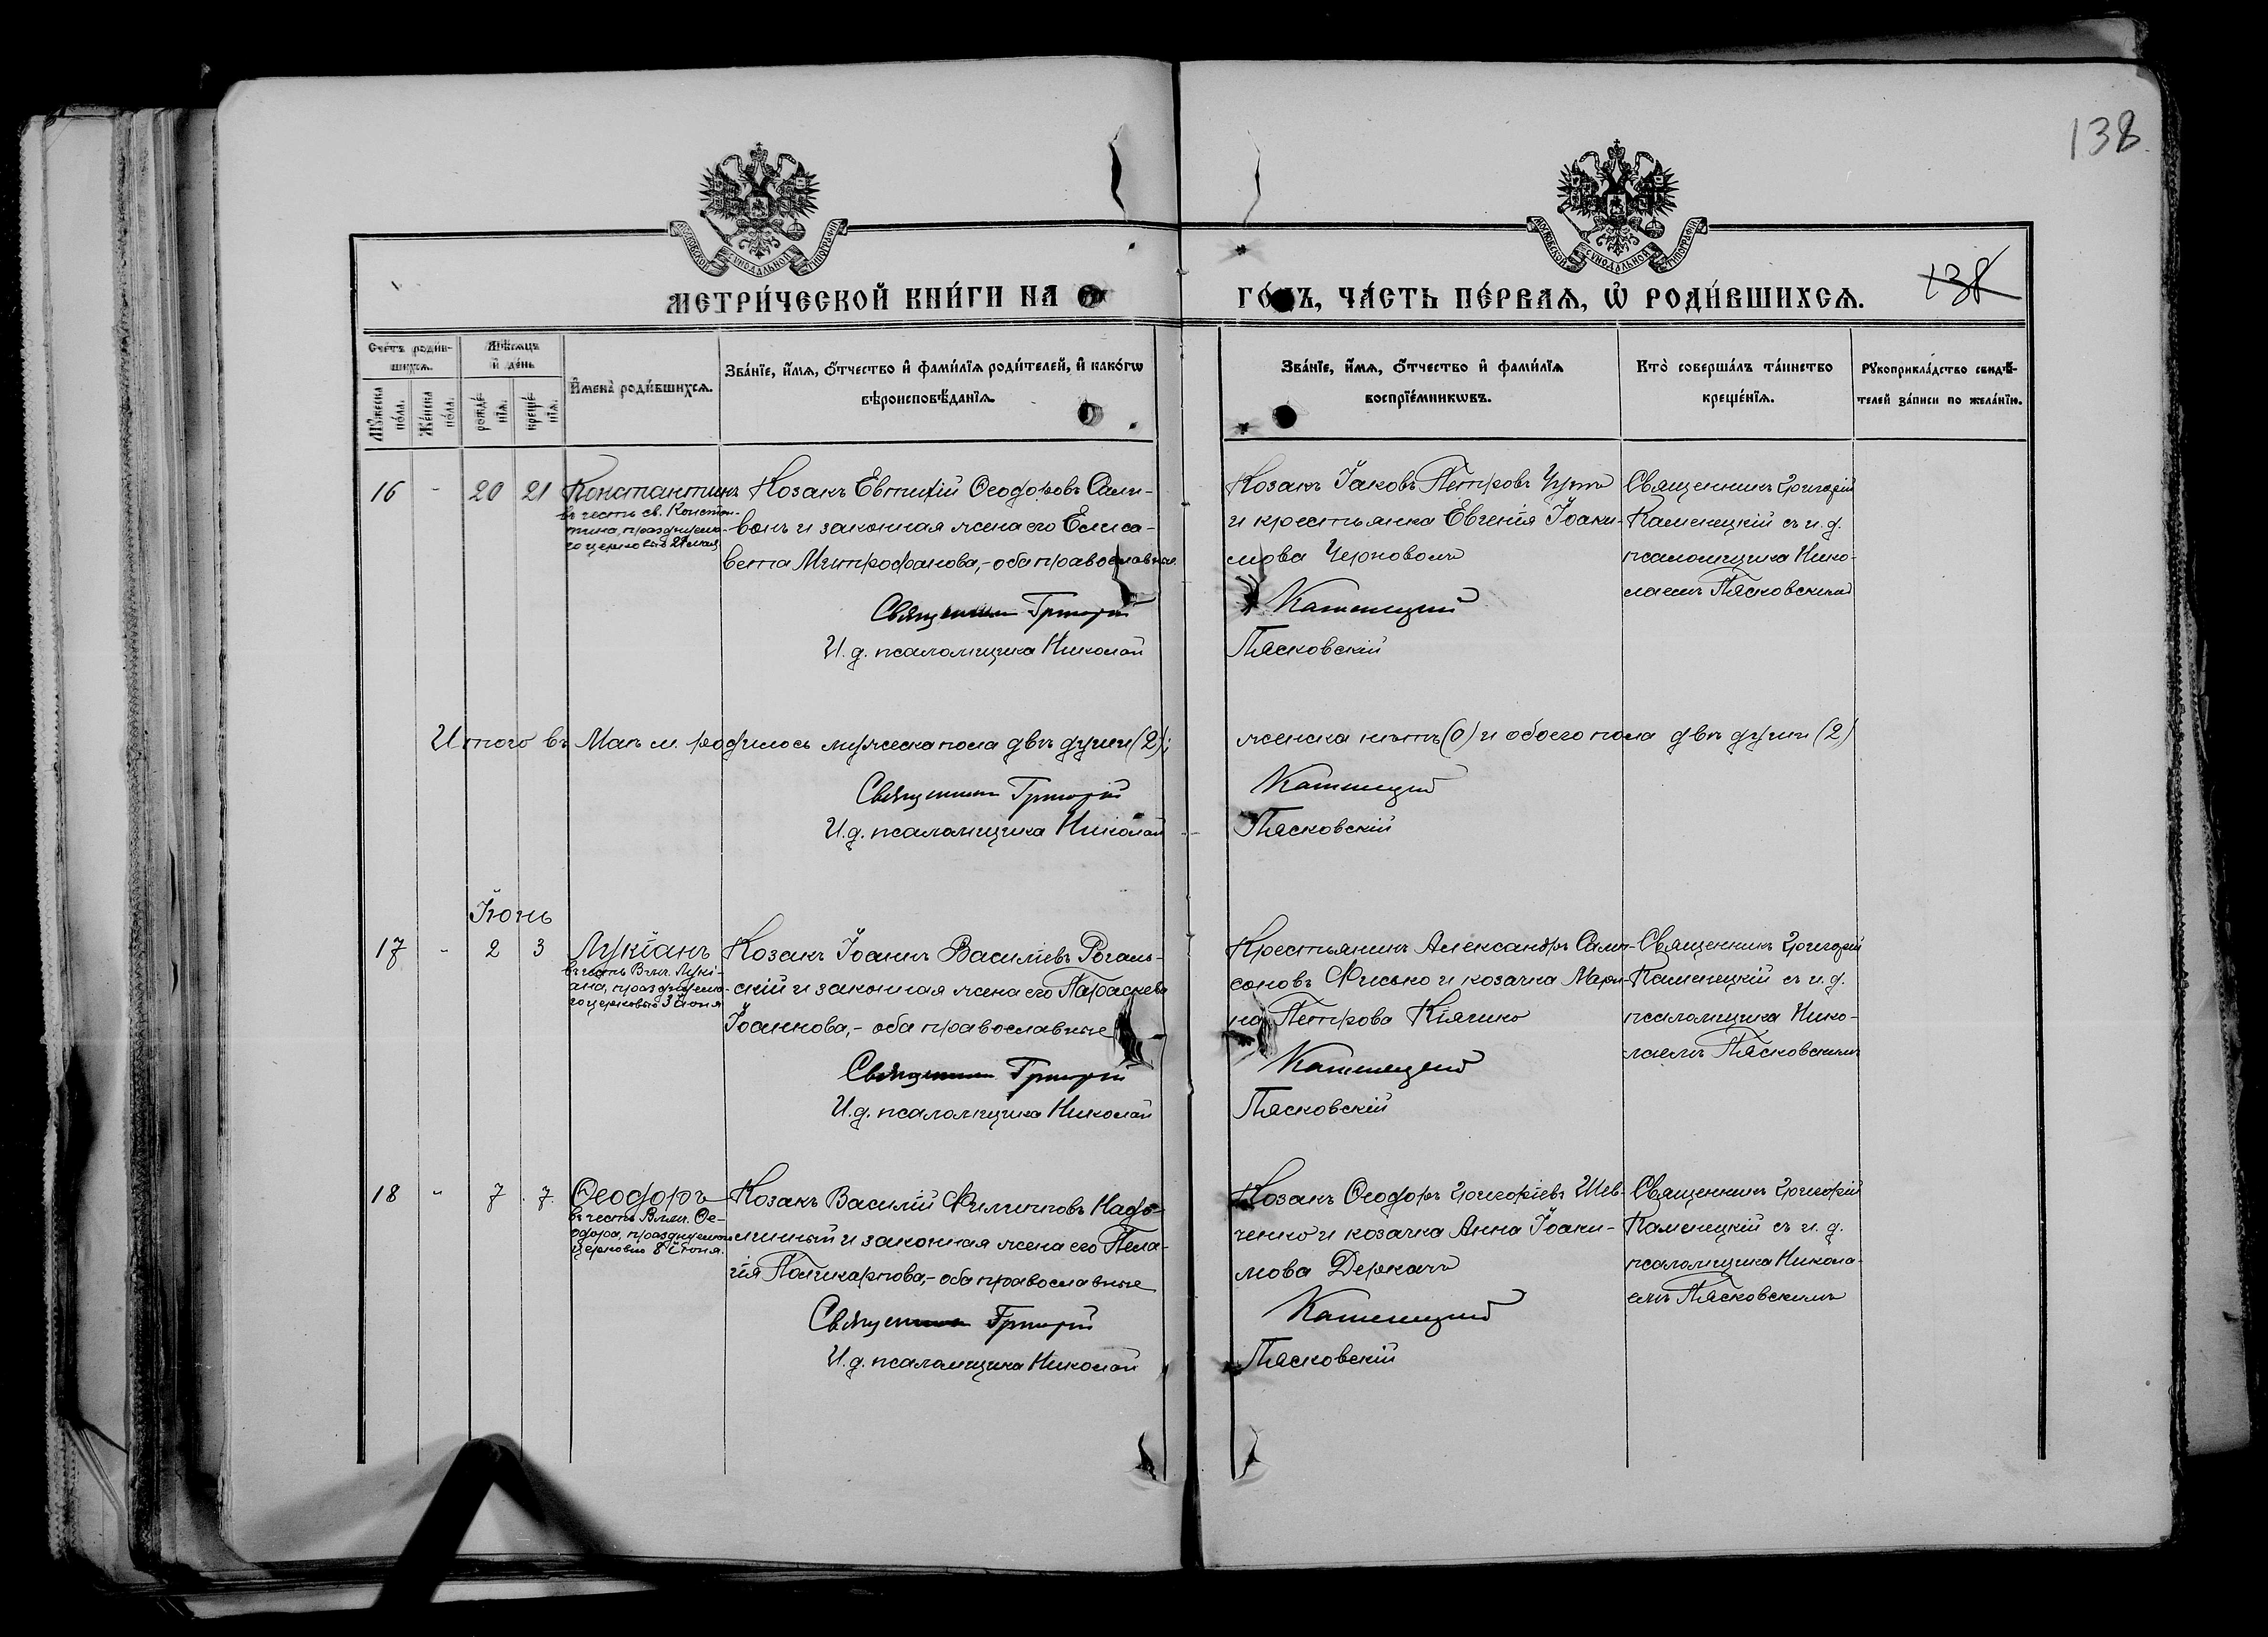 138
МОСКОВСКОЙ СѴНОДАЛЬНОЙ ТИПОГРАФІИ
МОСКОВСКОЙ СѴНОДАЛЬНОЙ ТИПОГРАФІИ
МЕТРИ́ЧЕСКОЙ КНИ́ГИ НА
ГО́ДЪ, ЧА́СТЬ ПЕ́РВАѦ, Ѽ РОДИ́ВШИХСѦ.
138
Сче́тъ роди́в-
шихсѧ.
Мѣ́сѧцъ
и҆ де́нь
Мꙋ́жеска
по́ла.
Же́нска
по́ла.
рожде́-
нїѧ.
креще́-
нїѧ.
И҆мена̀ роди́вшихсѧ.
Зва́нїе, и҆́мѧ, ѻ҆́тчество и҆ фами́лїѧ роди́телей, и҆ како́гѡ
вѣроисповѣ́данїѧ.
Зва́нїе, и҆́мѧ, ѻ҆́тчество и҆ фами́лїѧ
воспрїе́мникѡвъ.
Кто̀ соверша́лъ та́инство
креще́нїѧ.
Рꙋкоприкла́дство свидѣ́-
телей за́писи по жела́нїю.
16 - 20 21 Константинъ
въ честь св. Констан-
тина, празднуема-
го церковью 21 мая
Козакъ Евтихій Ѳеодоровъ Сали-
вонъ и законная жена его Елиса-
вета Митрофанова,- оба православные.
Священникъ Григорій
И. д. псаломщика Николай
Козакъ Іаковъ Петровъ
и крестьянка Евгенія Іоаки-
мова Черноволъ
Каменецкий
Пясковскій
Священникъ Григорій
Каменецкій съ и. д.
псаломщика Нико-
лаемъ Пясковскимъ
Итого въ Маѣ м. родилось мужеска пола двѣ души (2);
женска нѣтъ (0) и обоего пола двѣ души (2)
Священникъ Григорій
Каменецкий
И. д. псаломщика Николай
Пясковскій
Іюнь
17 - 2 3 Лукіанъ
въ честь Вмч. Лукі-
ана, празднуема-
го церковью 3 Іюня
Козакъ Іоаннъ Василіевъ Рогаль-
скій и законная жена его Параскева
Іоаннова,- оба православные
Священникъ Григорій
И. д. псаломщика Николай
Крестьянинъ Александръ Самп-
соновъ Фисько и козачка Мари-
на Петрова Кіяшко
Каменецкий
Пясковскій
Священникъ Григорій
Каменецкій съ и. д.
псаломщика Нико-
лаемъ Пясковскимъ
18 " 7 7. Ѳеодоръ
въ честь Вмч. Ѳе-
одора, празднуемаго
церковью 8 Іюня.
Козакъ Василій Филипповъ Надо-
линный и законная жена его Пела-
гія Поликарпова,- оба православные
Священникъ Григорій
И. д. псаломщика Николай
Козакъ Ѳеодоръ Григоріевъ Шев-
ченко и козачка Анна Іоаки-
мова Деркачъ
Каменецкий
Пясковскій
Священникъ Григорій
Каменецкій съ и. д.
псаломщика Никола-
емъ Пясковскимъ